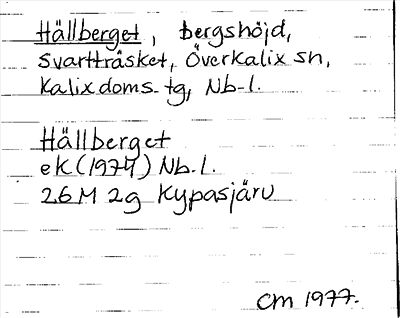 Hällberget, bergshöjd,
Svartträsket, Överkalix sn,
Kalix doms. tg, Nb-l.
Hällberget
ek (1974) Nb. l.
26 M 2g Kypasjärv
CM 1977.